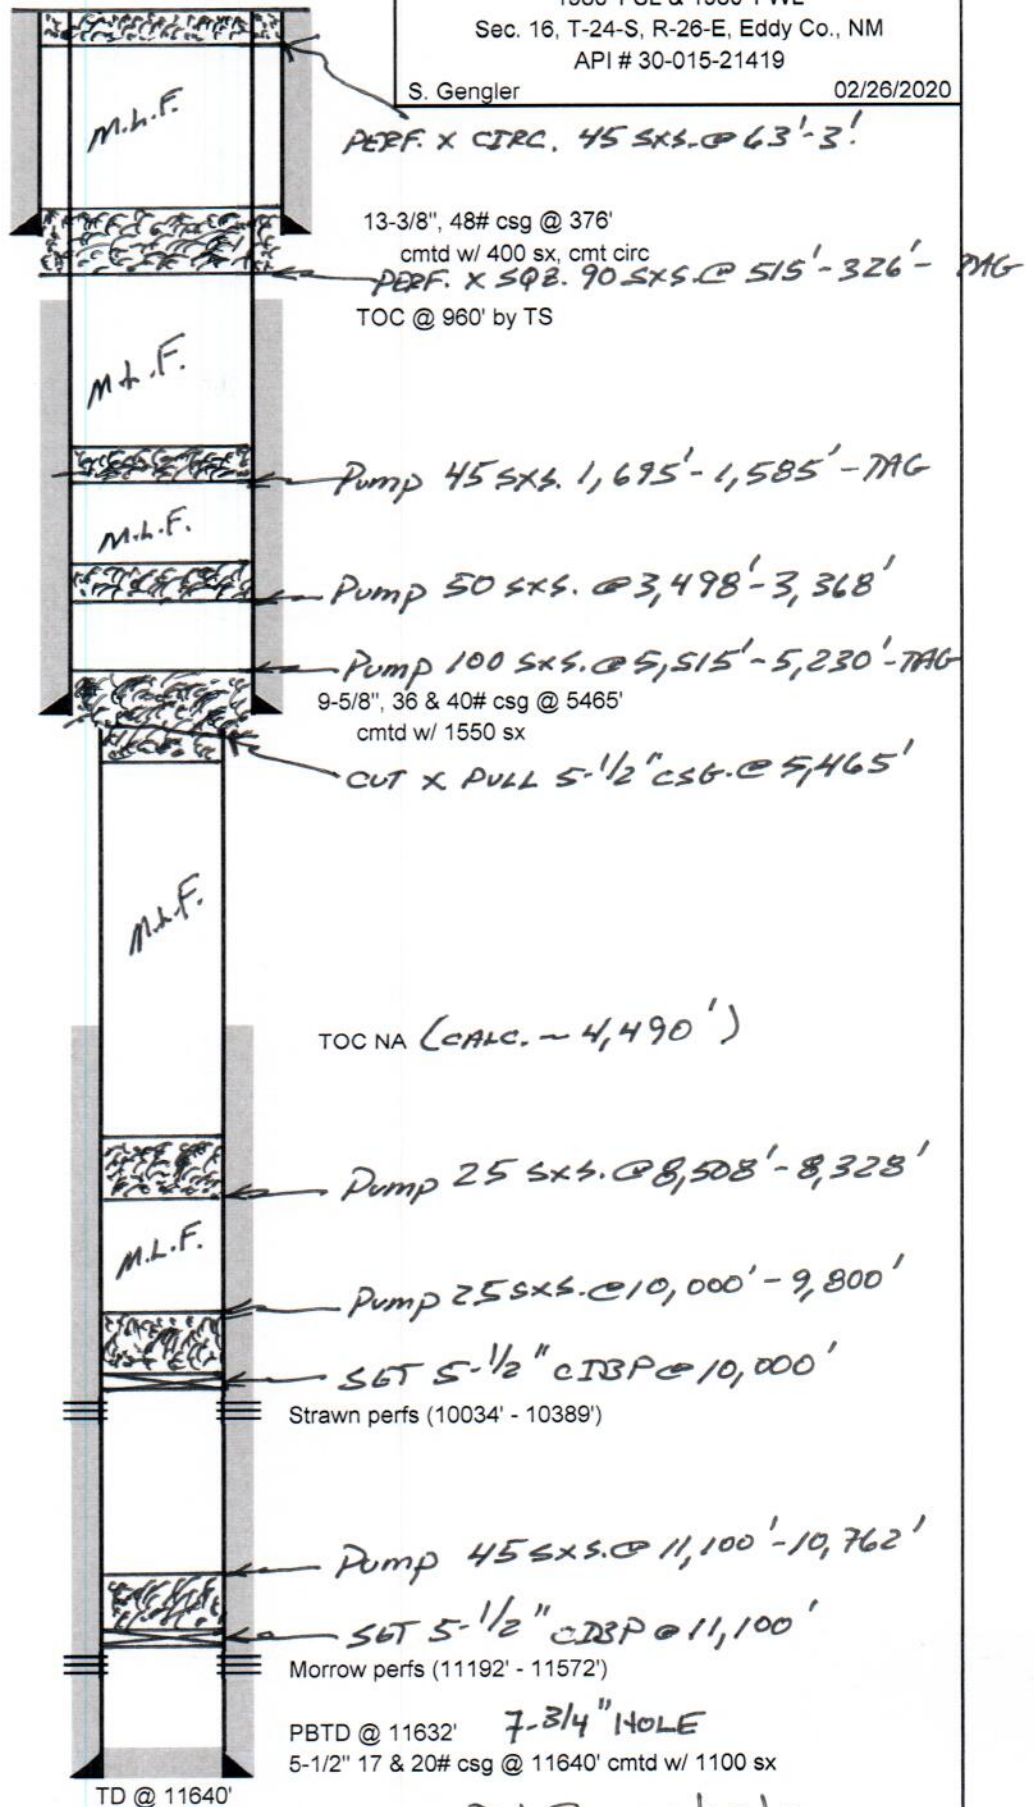 Sec. 16, T-24-S, R-26-E, Eddy Co., NM
API # 30-015-21419
S. Gengler 02/26/2020
M.L.F.
PERF. X CIRC. 45 SXS. @ 63'-3'
13-3/8", 48# csg @ 376'
cmtd w/ 400 sx, cmt circ
PERF. X SQZ. 90 SXS. @ 515'-326'- TAG
TOC @ 960' by TS
M.L.F.
Pump 45 SXS. 1,695'-1,585'-TAG
M.L.F.
Pump 50 SXS. @ 3,498'-3,368'
Pump 100 SXS. @ 5,515'-5,230'-TAG
9-5/8", 36 & 40# csg @ 5465'
cmtd w/ 1550 sx
CUT X PULL 5-1/2" CSG. @ 5,465'
M.L.F.
TOC NA (CALC. ~ 4,490')
Pump 25 SXS. @ 8,508'-8,328'
M.L.F.
Pump 25 SXS. @ 10,000'-9,800'
SET 5-1/2" CIBP @ 10,000'
Strawn perfs (10034' - 10389')
Pump 45 SXS. @ 11,100'-10,762'
SET 5-1/2" CIBP @ 11,100'
Morrow perfs (11192' - 11572')
PBTD @ 11632' 7-3/4" HOLE
5-1/2" 17 & 20# csg @ 11640' cmtd w/ 1100 sx
TD @ 11640'